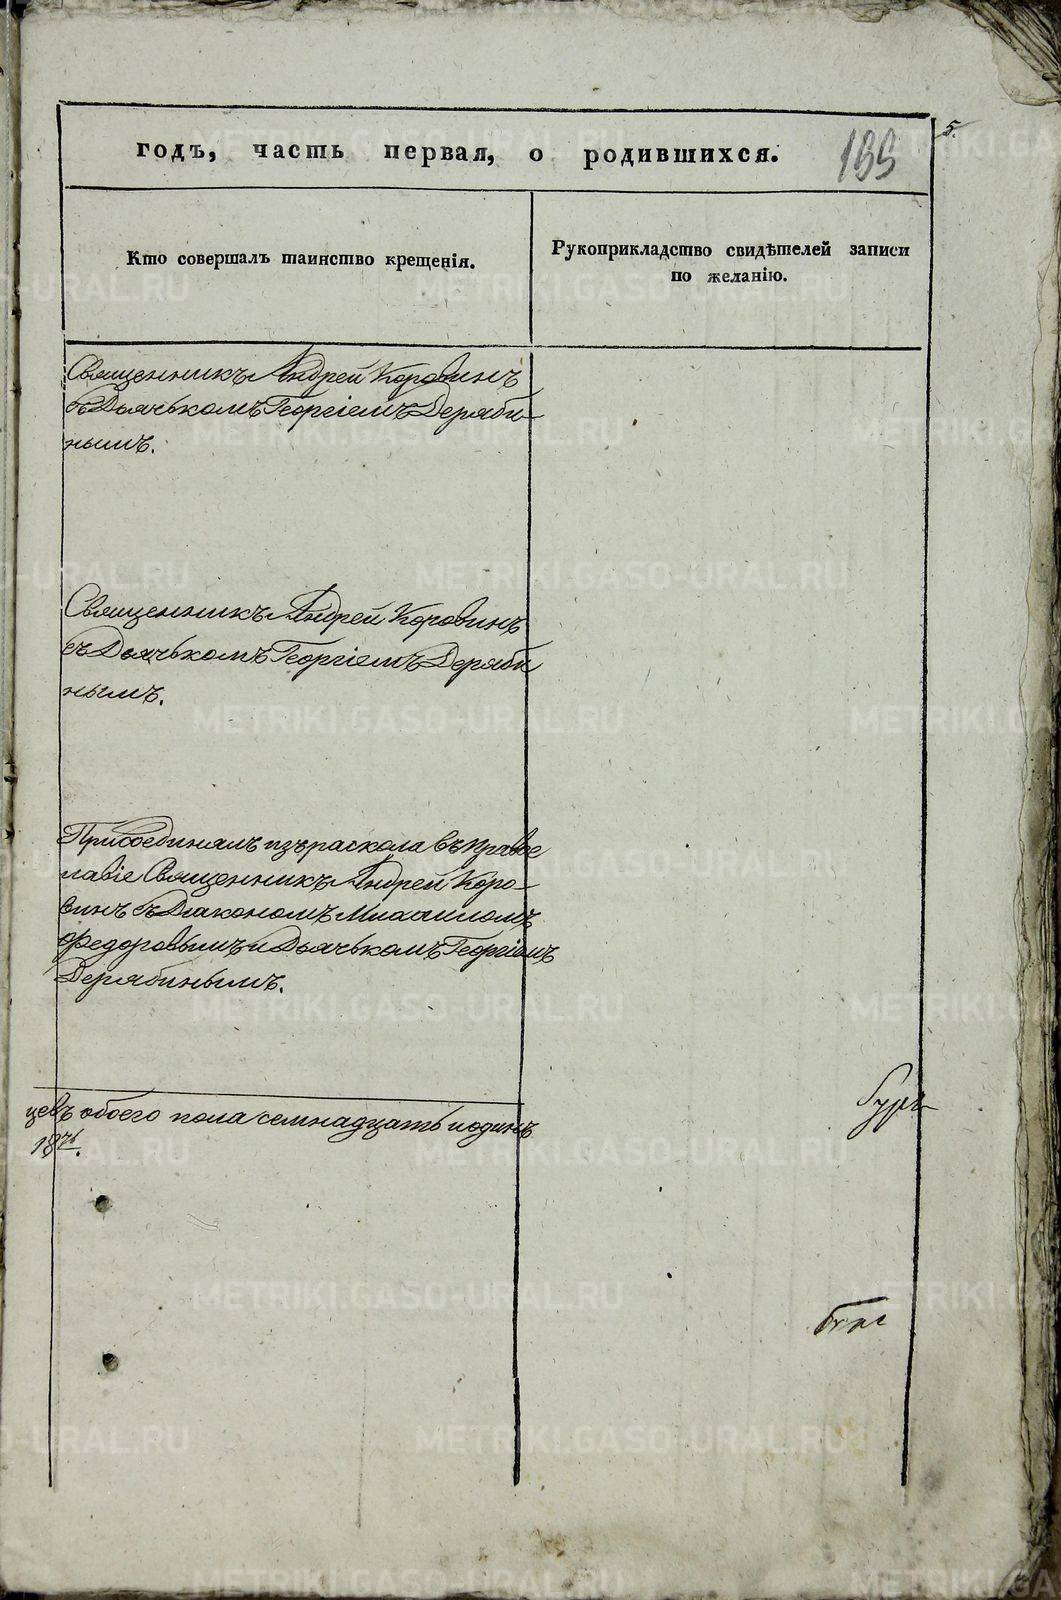 годъ, часть первая, о родившихся.
5.
Кто совершалъ таинство крещенія.
Рукоприкладство свидѣтелей записи
по желанію.
Священникъ Андрей Коровинъ
съ Дьячькомъ Георгіемъ Деряби-
нымъ.
Священникъ Андрей Коровинъ
съ Дьячькомъ Георгіемъ Деряби
нымъ.
Присоединялъ изъ раскола въ право
славіе Священникъ Андрей Коро-
винъ съ Діакономъ
Федоровымъ и Дьячькомъ Георгіемъ
Дерябинымъ.
цевъ обоего пола семнадцать и одинъ
METRIKI.GASO-URAL.RU